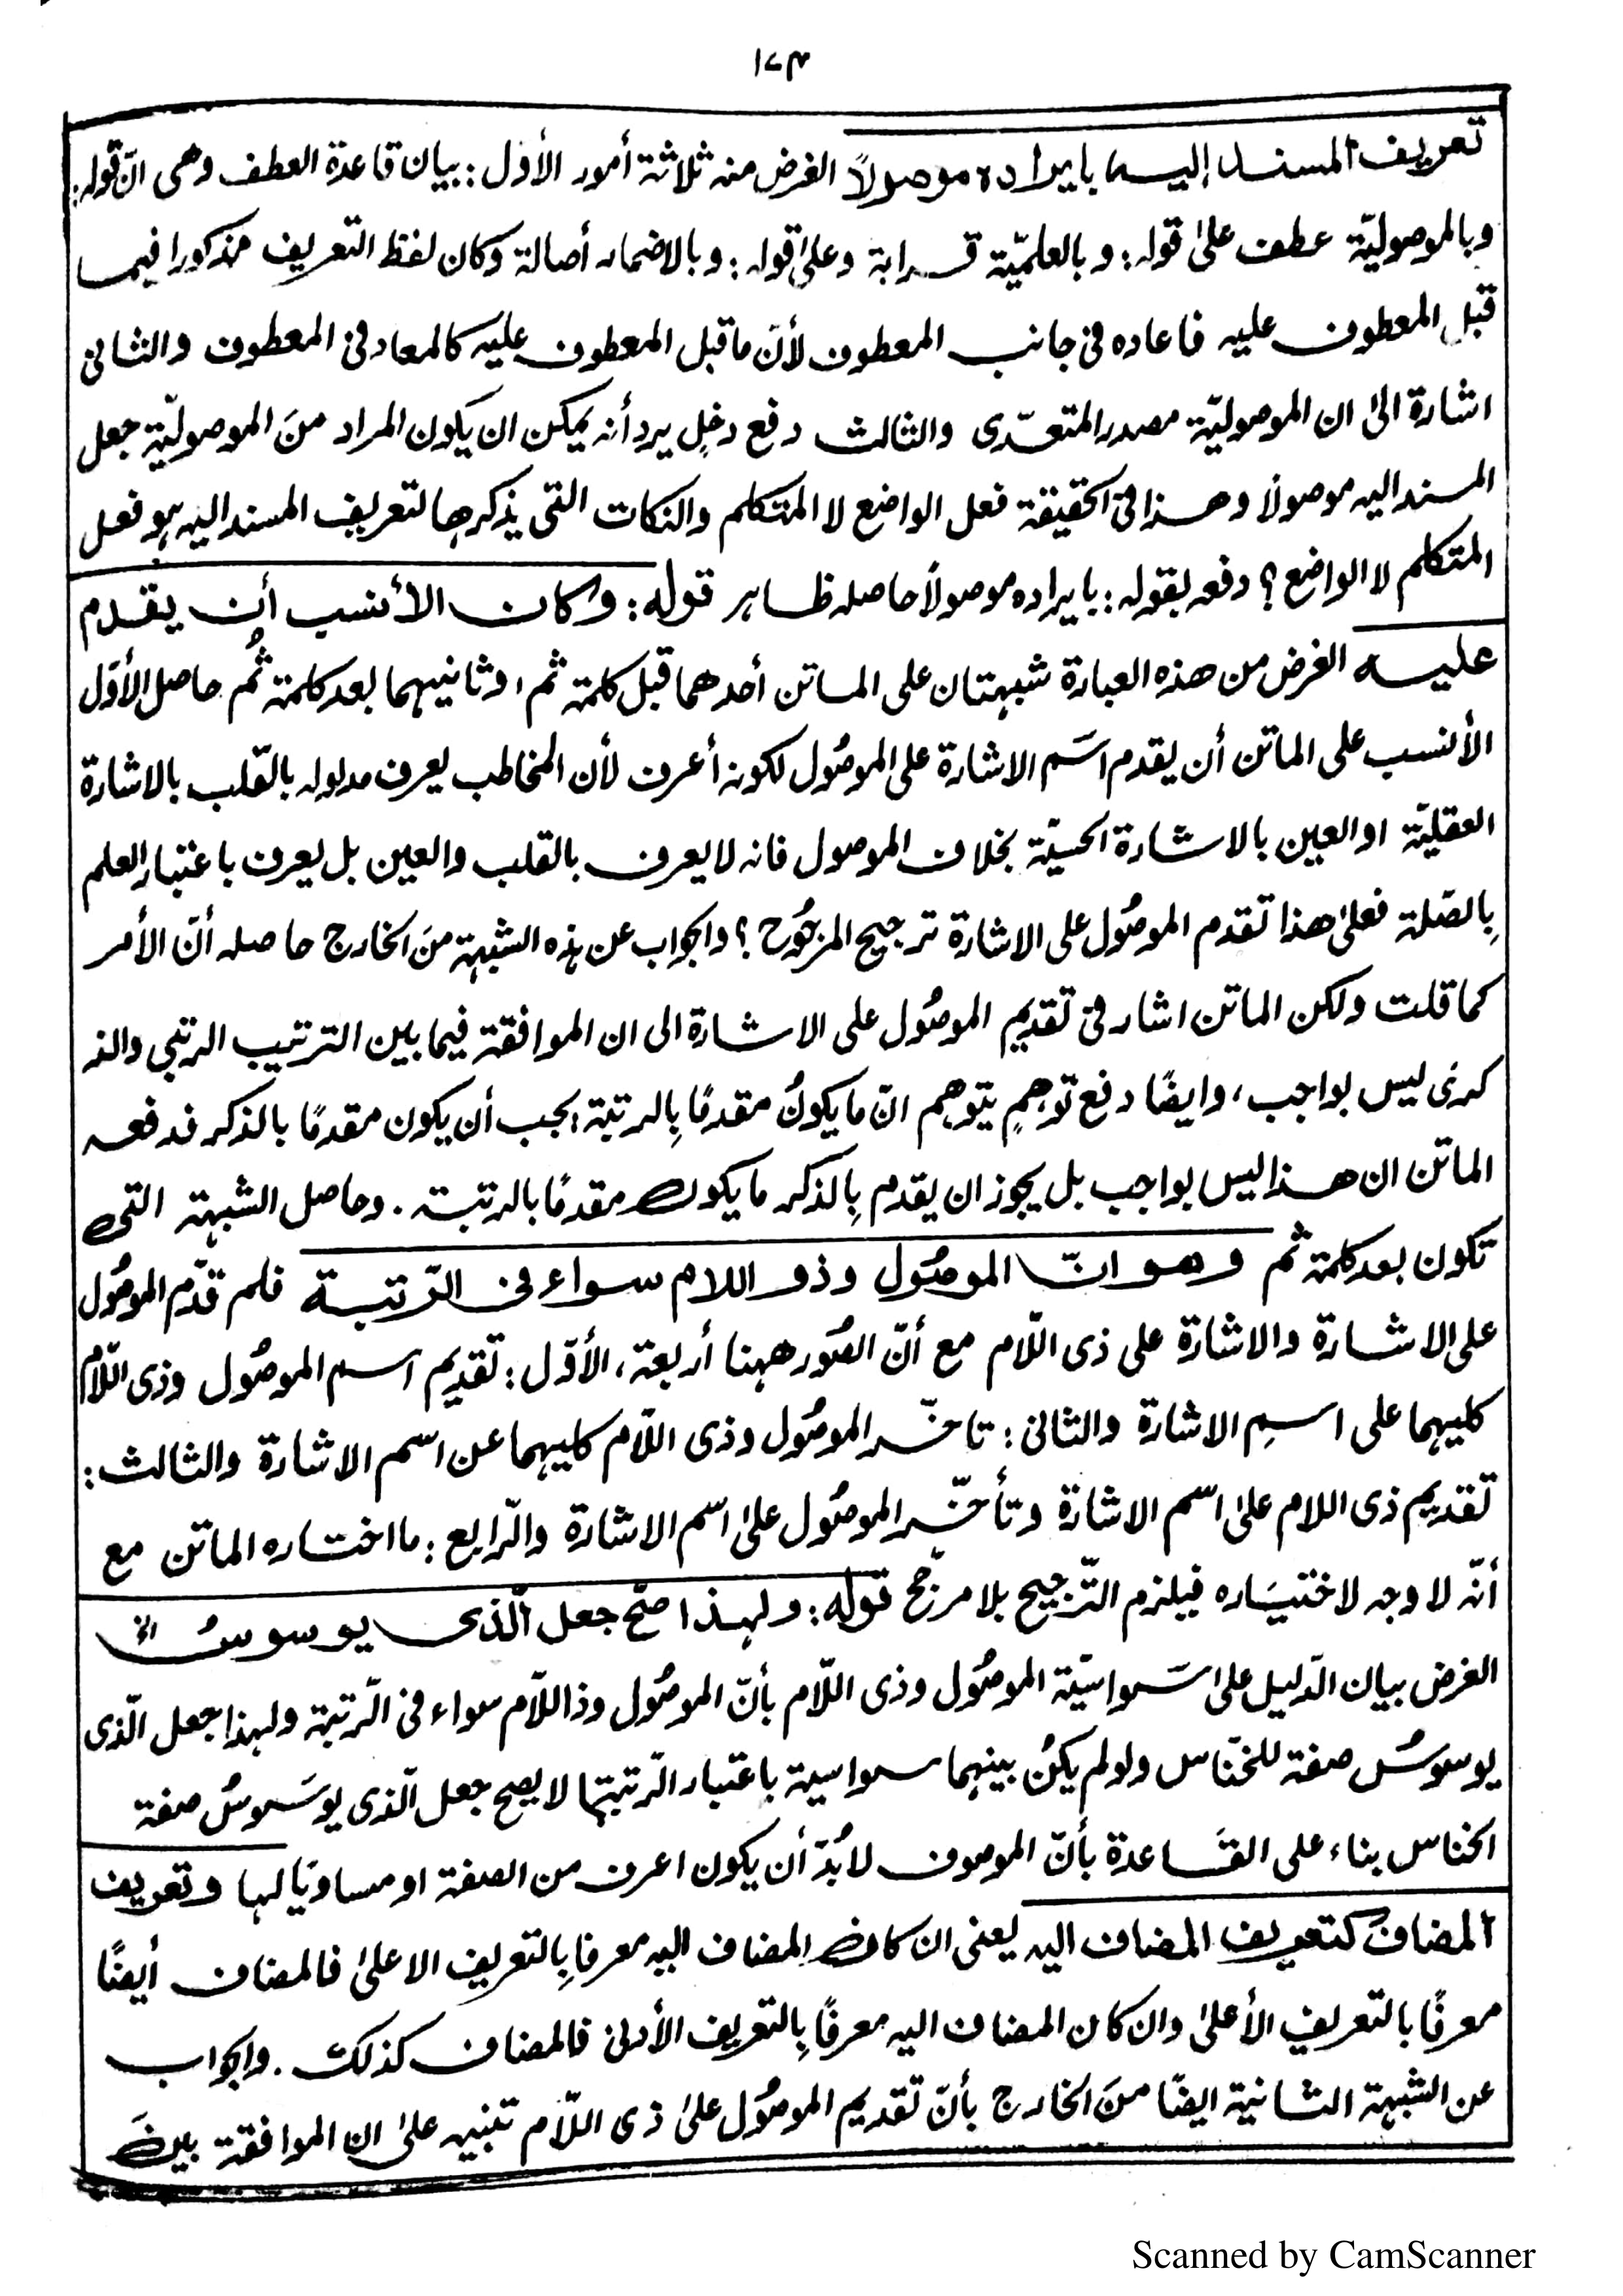 ١٧٣
تعريف المسند إليه بايراده موصولاً الغرض منه ثلاثة أمور الأول: بيان قاعدة العطف وهى انّ قوله:
وبالموصوليّة عطف علىٰ قوله: وبالعلميّة قرابة وعلىٰ قوله: وبالاضمار أصالة وكان لفظ التعريف مذكورا فيما
قبل المعطوف عليه فاعاده فى جانب المعطوف لأنّ ما قبل المعطوف عليه كالمعاد فى المعطوف والثانى
اشارة الىٰ ان الموصوليّة مصدر المتعدّى والثالث دفع دخلٍ يرد أنه يمكن ان يكون المراد منَ الموصوليّة جعل
المسند اليه موصولًا وهذا فى الحقيقة فعل الواضع لا المتكلم والنكات التى يذكرها لتعريف المسند اليه هو فعل
المتكلم لا الواضع؟ دفعه بقوله: بايراده موصولًا حاصله ظاهر قوله: وكان الأنسب أن يقدم
عليه الغرض من هذه العبارة شبهتان على الماتن أحدهما قبل كلمة ثم، وثانيهما بعد كلمة ثُم حاصل الأوّل
الأنسب على الماتن أن يقدم اسَم الاشارة على الموصُول لكونه أعرف لأن المخاطب يعرف مدلوله بالقلب بالاشارة
العقليّة او العين بالاشارة الحسيّة بخلاف الموصول فانه لا يعرف بالقلب والعين بل يعرف باعتبار العلم
بِالصّلة فعلىٰ هذا تقدم الموصُول على الاشارة ترجيح المرجُوح؟ والجواب عن هذه الشبهة منَ الخارج حاصله أنّ الأمر
كما قلت ولكن الماتن اشار فى تقديم الموصُول على الاشارة الى ان الموافقة فيما بين الترتيب الرتبي والذ
كرى ليس بواجب، وايضًا دفع توهمٍ يتوهم انّ ما يكونُ مقدمًا بِالرتبة يجب أن يكون مقدمًا بالذكر فدفعه
الماتن ان هذا ليس بواجب بل يجوز ان يقدم بِالذكر ما يكون مقدمًا بالرتبة. وحاصل الشبهة التى
تكون بعد كلمة ثم وهو انّ الموصُول وذو اللام سواء فى الرّتبة فلم قدّم الموصُول
على الاشارة والاشارة على ذى اللّام مع أنّ الصُور ههنا أربعة، الأوّل: تقديم اسم الموصُول وذى اللّام
كليهما على اسمِ الاشارة والثانى: تاخّر الموصُول وذى اللّام كليهما عن اسم الاشارة والثالث:
تقديم ذى اللام علىٰ اسم الاشارة وتأخّر الموصُول علىٰ اسم الاشارة والرّابع: ما اختاره الماتن مع
أنّه لا وجه لاختيَاره فيلزم التّرجيح بلا مرجّح قوله: ولهذا صحّ جعل الّذى يوسوسُ الخ
الغرض بيان الدّليل علىٰ سَواسيّة الموصُول وذى اللّام بأنّ الموصُول وذا اللّام سواء فى الرّتبة ولهذا جعل الّذى
يوسوسُ صفة للخنّاس ولو لم يكنُ بينهما سواسية باعتبار الرّتبتها لا يصح جعل الّذى يوسَوسُ صفة
الخناس بناء على القَاعدة بأنّ الموصوف لا بُدّ أن يكون اعرف من الصفة او مساويًا لها وتعريف
المضاف كتعريف المضاف اليه يعنى ان كان المضاف اليه معرفا بِالتعريف الاعلىٰ فالمضاف أيضًا
معرفًا بالتعريف الأعلىٰ وان كان المضاف اليه معرفًا بِالتعريف الأدنىٰ فالمضاف كذلك. والجواب
عن الشبهة الثانية ايضًا منَ الخارج بأنّ تقديم الموصُول علىٰ ذى اللّام تنبيه علىٰ ان الموافقة بينَ
Scanned by CamScanner